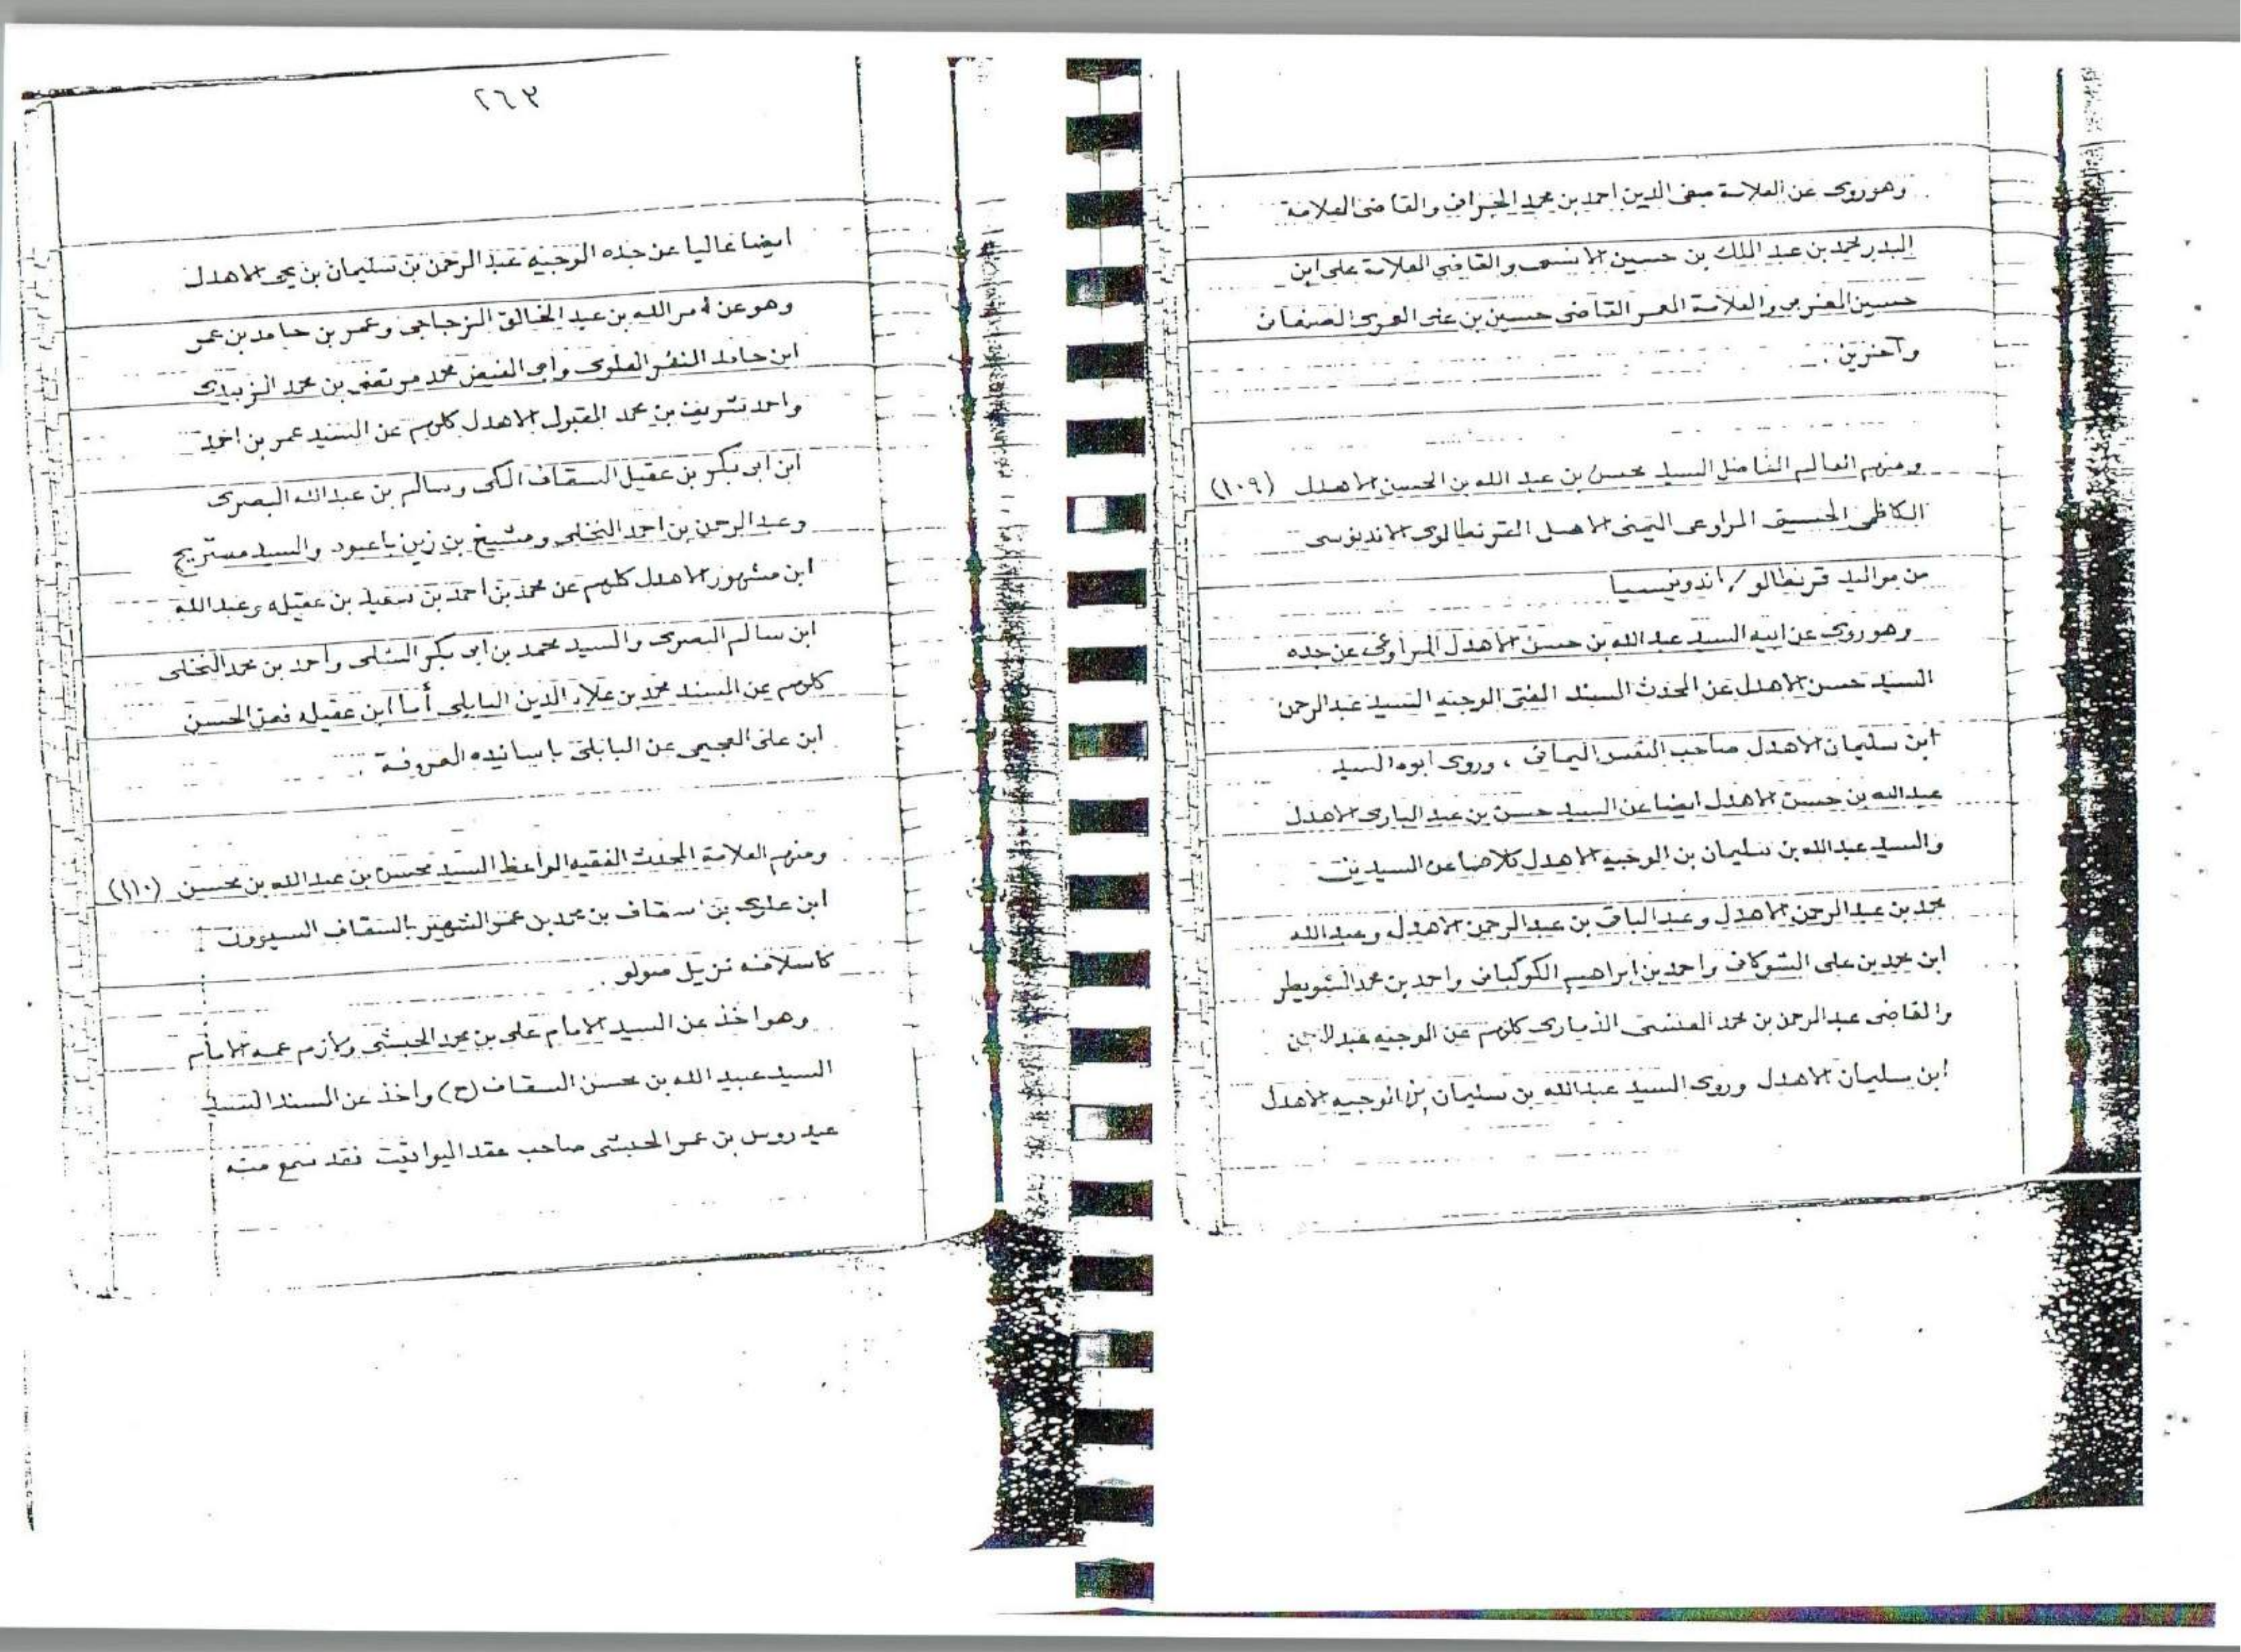 وهو روى عن العلامة صفي الدين احمد بن محمد الجرافي والقاضى العلامة
البدر محمد بن عبد الملك بن حسين الانسي والقاضي العلامة على ابن
حسين المغربي والعلامة المعمر القاضى حسين بن على العمرى الصنعانى
وآخرين .
ومنهم العالم الفاضل السيد محسن بن عبد الله بن الحسن الاهدل (١٠٩)
الكاظمى الحسينى المراوعى اليمنى الاصل القرنطالوى الاندنوسى
من مواليد قرنطالو / اندونيسيا
وهو روى عن ابيه السيد عبد الله بن حسن الاهدل المراوعى عن جده
السيد حسن الاهدل عن المحدث المسند المفتى الوجيه السيد عبد الرحمن
ابن سليمان الاهدل صاحب النفس اليمانى ، وروى ابوه السيد
عبد الله بن حسن الاهدل ايضا عن السيد حسن بن عبد البارى الاهدل
والسيد عبد الله بن سليمان بن الوجيه الاهدل كلاهما عن السيدين
محمد بن عبد الرحمن الاهدل وعبد الباقى بن عبد الرحمن الاهدل وعبد الله
ابن محمد بن على الشوكانى واحمد بن ابراهيم الكوكبانى واحمد بن محمد الشويطر
والقاضى عبد الرحمن بن محمد العنسى الذمارى كلهم عن الوجيه عبد الرحمن
ابن سليمان الاهدل وروى السيد عبد الله بن سليمان بن الوجيه الاهدل
٢٦٣
ايضا عاليا عن جده الوجيه عبد الرحمن بن سليمان بن يحيى الاهدل
وهو عن امر الله بن عبد الخالق المزجاجى وعمر بن حامد بن عمر
ابن حامد المنفر العلوى وابى الفيض محمد مرتضى بن محمد الزبيدى
واحمد شريف بن محمد المقبول الاهدل كلهم عن السيد عمر بن احمد
ابن ابى بكر بن عقيل السقاف المكى وسالم بن عبد الله البصرى
وعبد الرحمن بن احمد النخلى ومشيخ بن زين باعبود والسيد مستريح
ابن مشهور الاهدل كلهم عن محمد بن احمد بن سعيد بن عقيله وعبد الله
ابن سالم البصرى والسيد محمد بن ابى بكر الشلى واحمد بن محمد النخلى
كلهم عن المسند محمد بن علاء الدين البابلى أما ابن عقيله فعن الحسن
ابن على العجيمى عن البابلى باسانيده المعروفة .
ومنهم العلامة المحدث الفقيه الواعظ السيد محسن بن عبد الله بن محسن (١١٠)
ابن علوى بن سقاف بن محمد بن عمر الشهير بالسقاف السيوونى
كاسلافه نزيل صولو .
وهو اخذ عن السيد الامام على بن محمد الحبشى ولازم عمه الامام
السيد عبيد الله بن محسن السقاف (ح) واخذ عن المسند السيد
عيدروس بن عمر الحبشى صاحب عقد اليواقيت فقد سمع منه